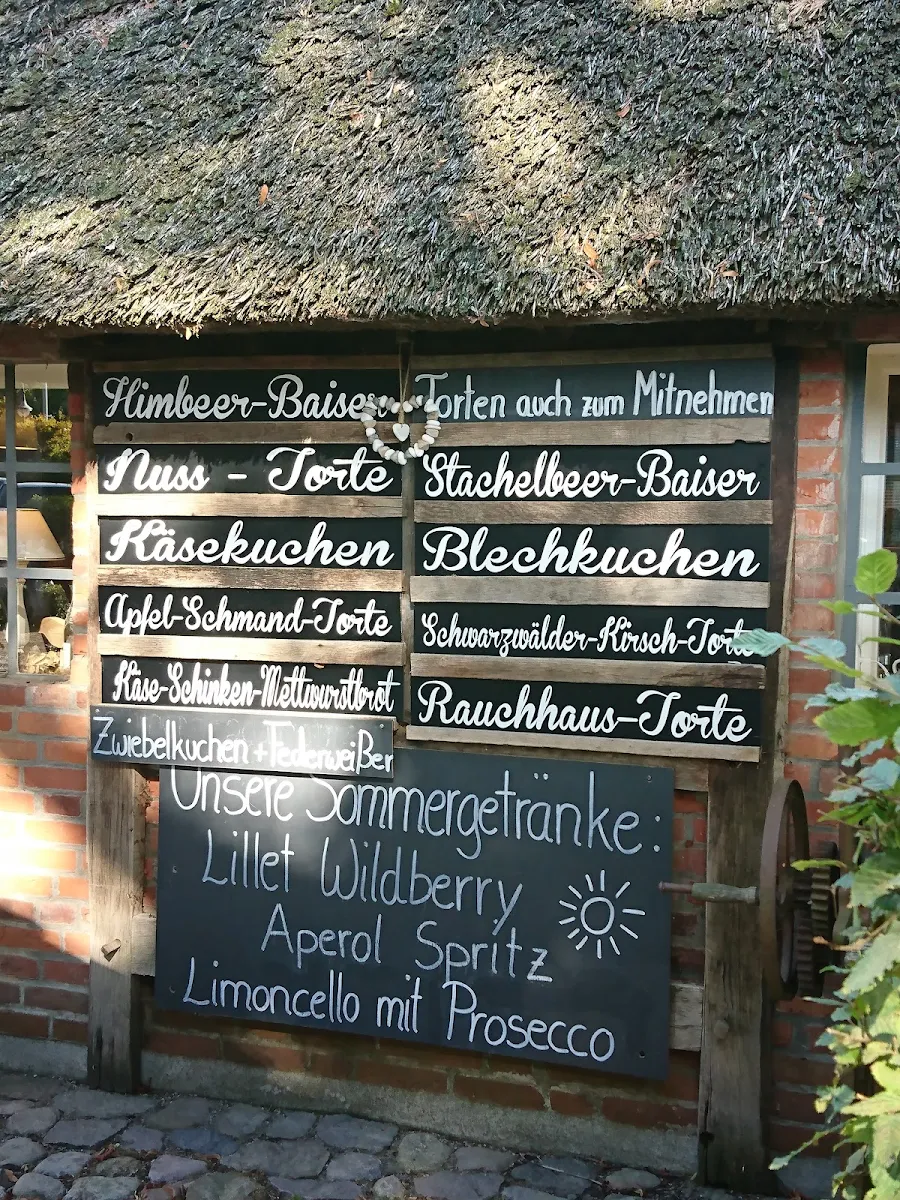 Himbeer-Baiser
Nuss - Torte
Käsekuchen
Apfel-Schmand-Torte
Käse-Schinken-Mettwurstbrot
Zwiebelkuchen + Federweißer
Torten auch zum Mitnehmen
Stachelbeer-Baiser
Blechkuchen
Schwarzwälder-Kirsch-Torte
Rauchhaus-Torte
Unsere Sommergetränke:
Lillet Wildberry
Aperol Spritz
Limoncello mit Prosecco